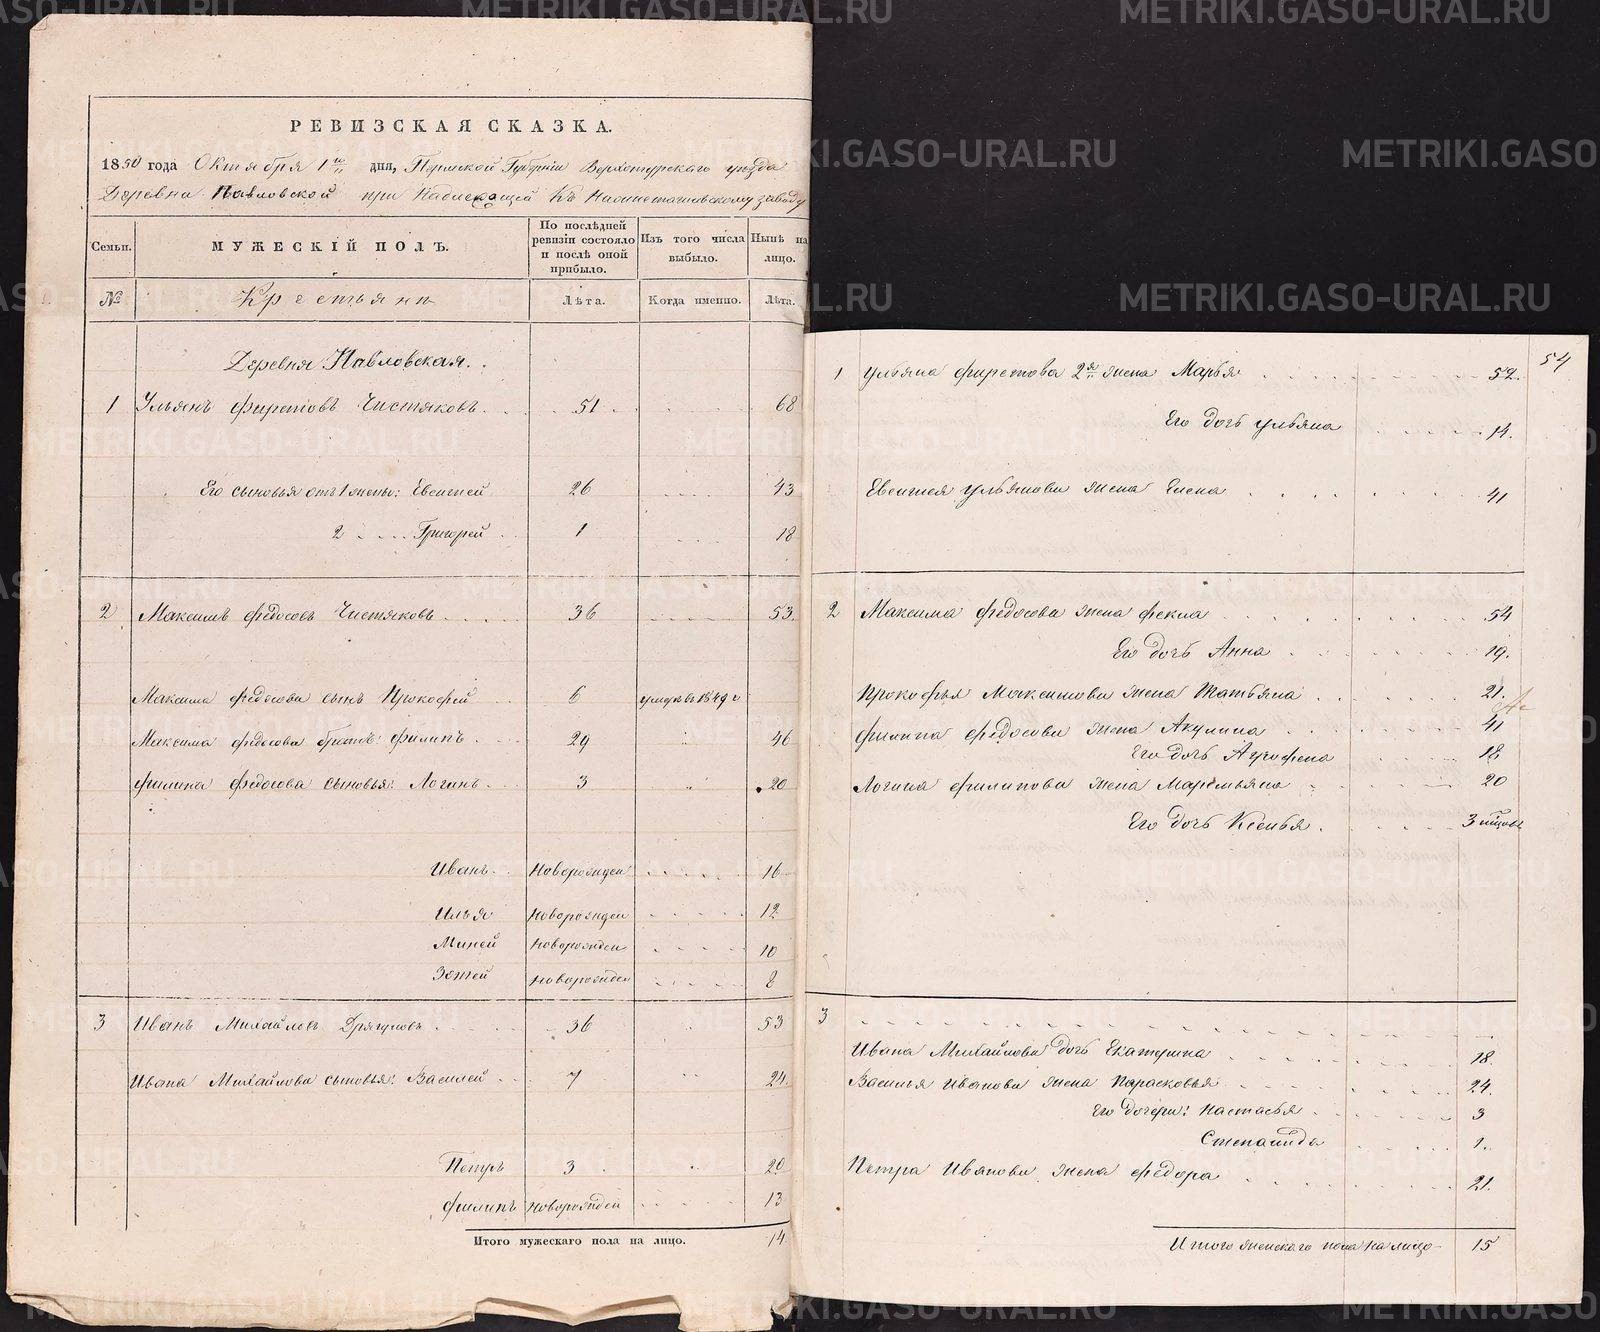 РЕВИЗСКАЯ СКАЗКА.
1850 года Октября 1го дня, Пермской Губернии Верхотурского уезда
Деревни Павловской при Надлежащей Къ заводу
Семьи. МУЖЕСКІЙ ПОЛЪ. По послѣдней ревизіи состояло и послѣ оной прибыло. Изъ того числа выбыло. Нынѣ на лицо.
№ Крестьяне Лѣта. Когда именно. Лѣта.
Деревня Павловская.
1 Ульянъ Фиретовъ Чистяковъ 51 68
Его сыновья отъ 1 жены: Евсигней 26 43
2 Григорей 1 18
2 Максимъ Федосовъ Чистяковъ 36 53
Максима Федосова сынъ Прокофей 6 умеръ въ 1849 г
Максима Федосова братъ: Филипъ 29 46
Филипа Федосова сыновья: Логинъ 3 20
Иванъ Новорожден 16
Илья Новорожден 12
Миней Новорожден 10
Новорожден 2
3 Иванъ Михайловъ Дрягуловъ 36 53
Ивана Михайлова сыновья: Василей 7 24
Петръ 3 20
Филипъ Новорожден 13
Итого мужескаго пола на лицо. 14
54
1 Ульяна Фиретова 2я жена Марья 52
Его дочь Ульяна 14.
Евсигнея Ульянова жена Елена 41
2 Максима Федосова жена Фекла 54
Его дочь Анна 19.
Прокофья Максимова жена Татьяна 21.
Филипа Федосова жена Акулина 41
Его дочь Агрофена 18
Логина Филипова жена Маремьяна 20
Его дочь Ксенья. 3
3
Ивана Михайлова дочь Екатерина 18.
Василья Иванова жена Парасковья 24.
Его дочери: Настасья 3
Степанида 1.
Петра Иванова жена Федора 21.
Итого женского пола на лицо 15
METRIKI.GASO-URAL.RU